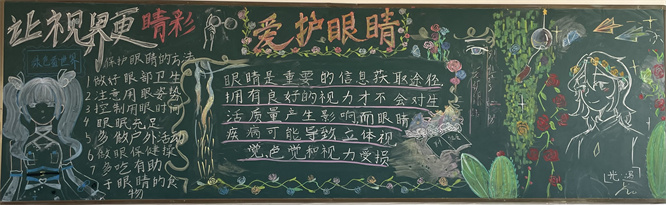 让视界更睛彩
保护眼睛的方法
1做好眼部卫生
2注意用眼姿势
3控制用眼时间
4眼眠充足
5多做户外活动
6做眼保健操
7多吃有助
于眼睛的食
物
爱护眼睛
眼睛是重要的信息获取途径
拥有良好的视力才不会对生
活质量产生影响而眼睛
疾病可能导致立体视
觉,色觉和视力受损